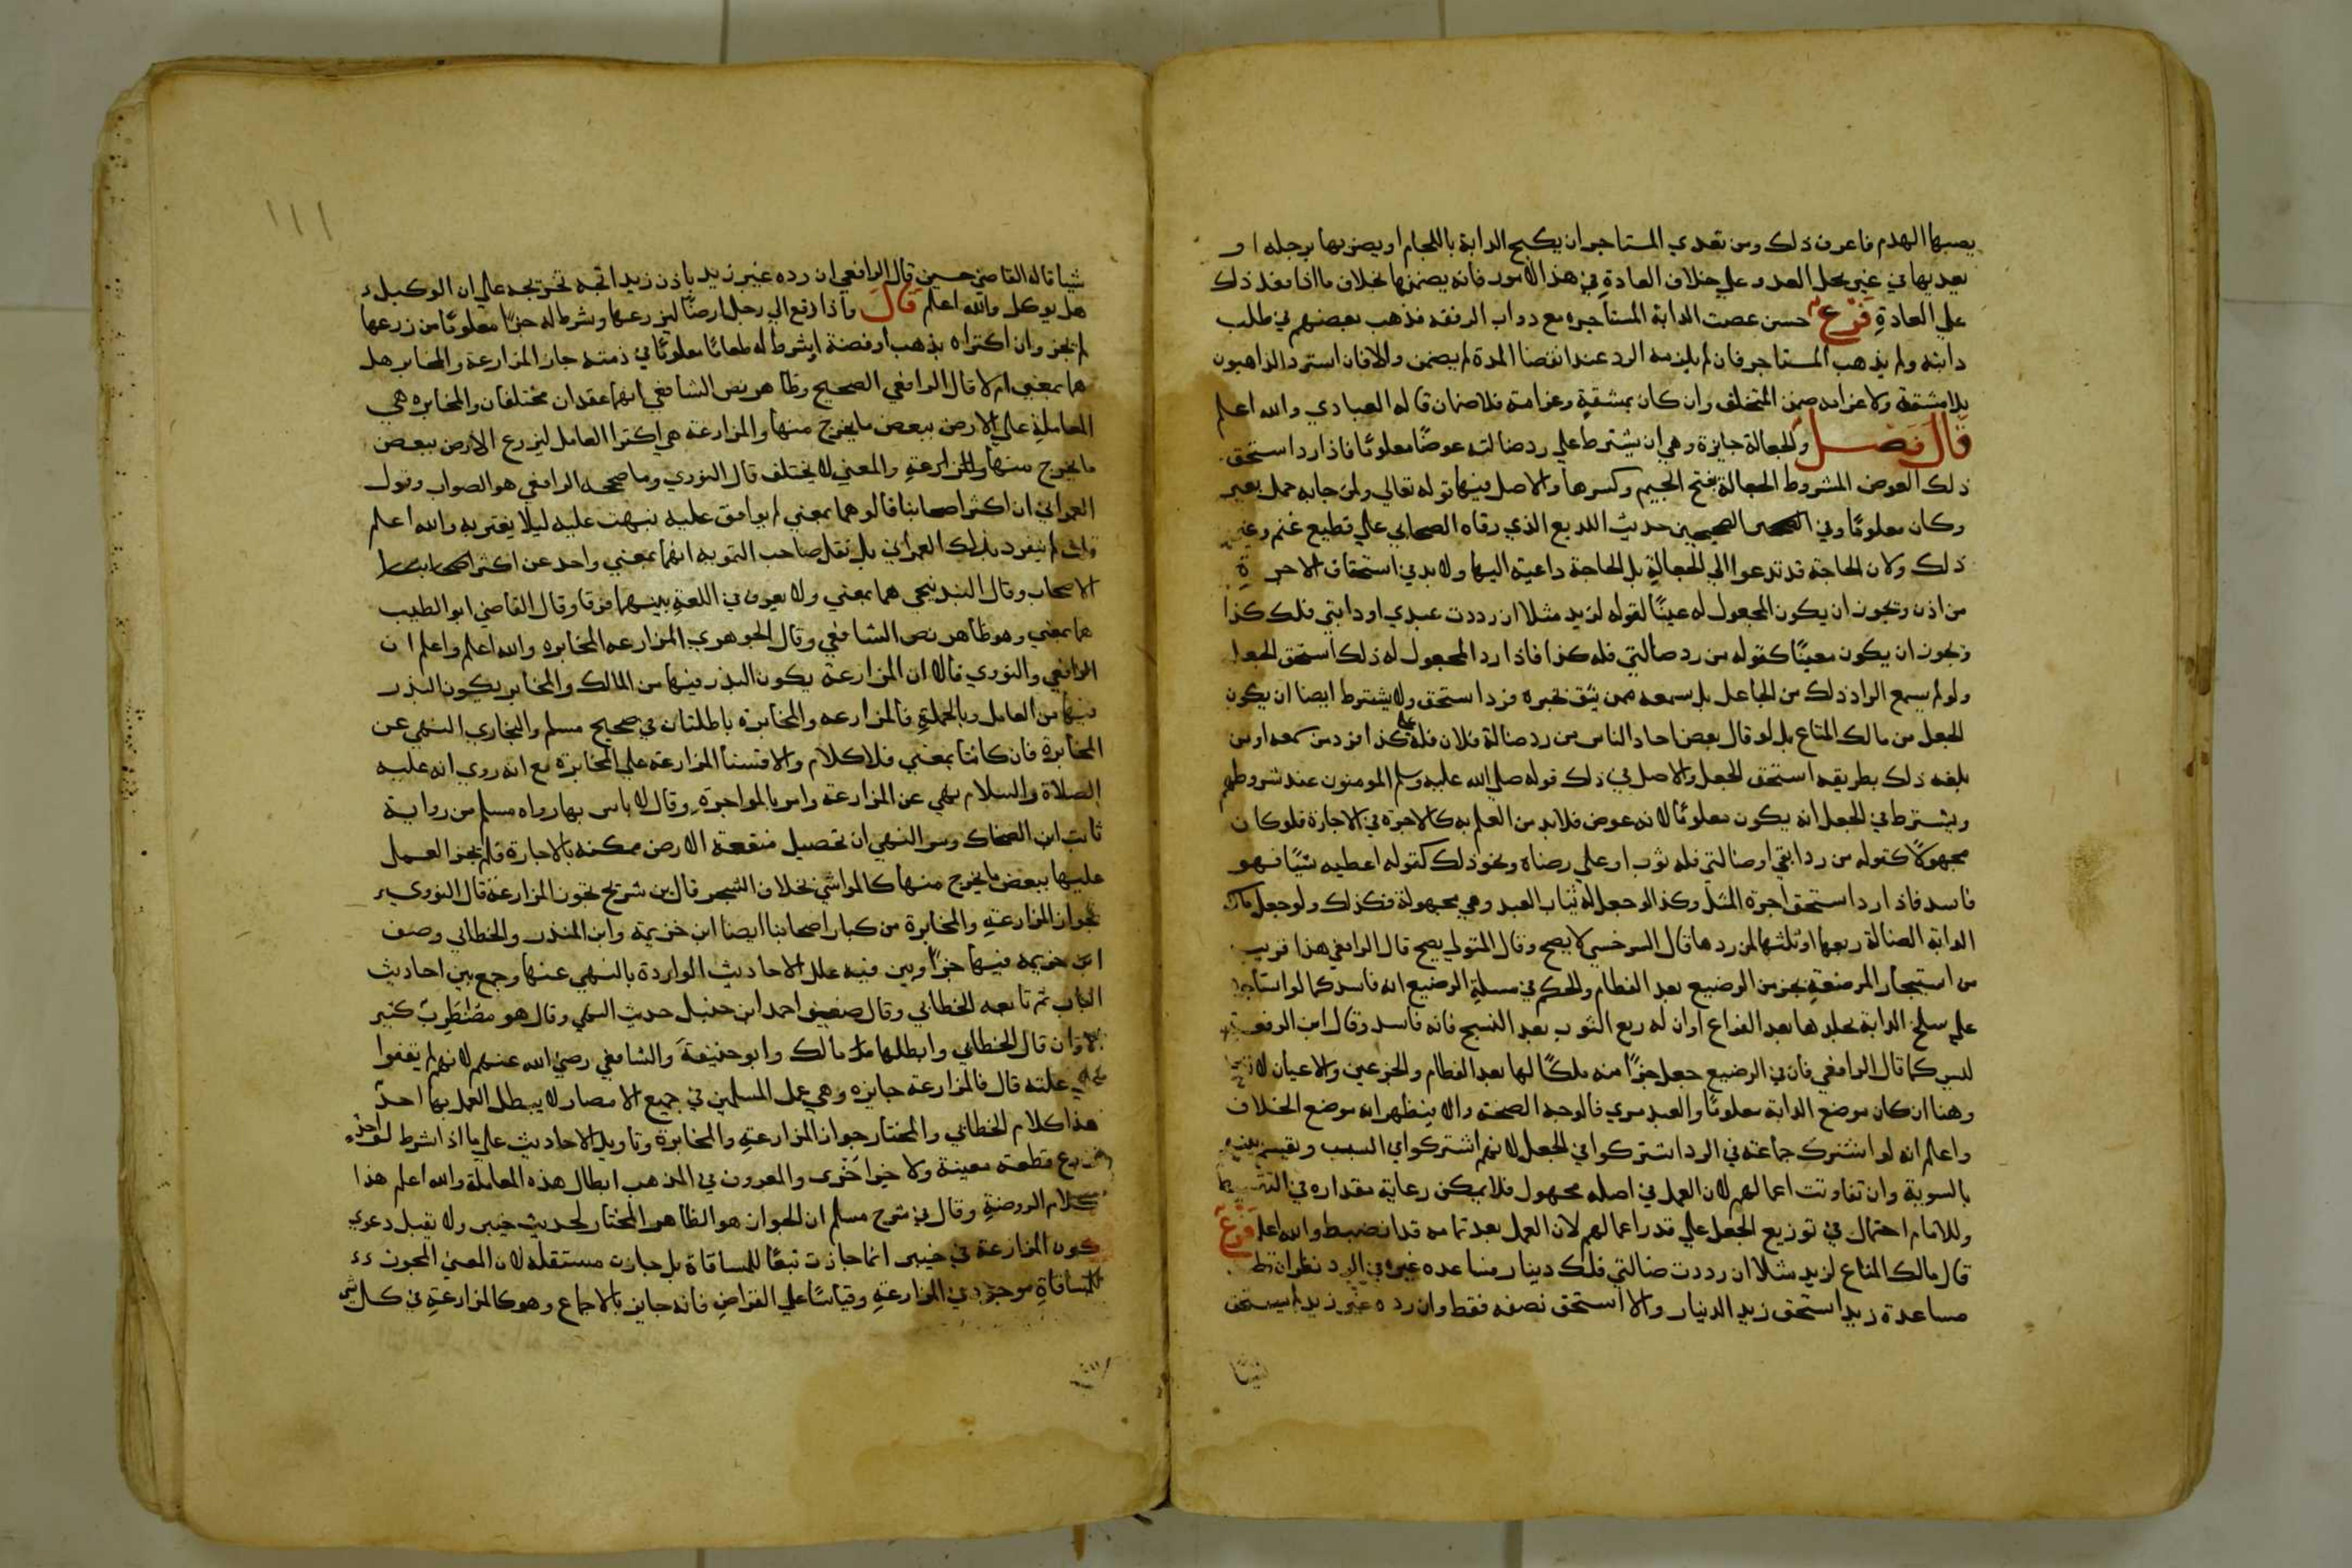 يصبها الهدم فاعرف ذلك ومن تعدي المستاجر ان يكبح الدابة باللجام او يضربها برجله او
يعديها في غير محل العدو علي خلاف العادة في هذا الامور فانه يضمنها بخلاف ما اذا فعل ذلك
علي العادة فرع حسن عصت الدابة المستاجره مع دواب الرفقه فذهب بعضهم في طلب
دابته ولم يذهب المستاجر فان لم يلزمه الرد عند انقضا المدة لم يضمن والا فان استرد الذاهبون
بلا مشقة ولا غرامه ضمن المتخلف وان كان بمشقة وغرامة فلا ضمان قاله العبادي والله اعلم
قال فصل والجعالة جايزة وهي ان يشترط علي رد ضالته عوضًا معلومًا فاذا رد استحق
ذلك العوض المشروط الجعالة بفتح الجيم وكسرها والاصل فيها قوله تعالي ولمن جابه حمل بعير
وكان معلومًا وفي الصحيحين حديث اللديع الذي رقاه الصحابي علي قطيع غنم وغير
ذلك ولان الحاجة قد تدعوا الي الجعالة بل الحاجة داعية اليها ولا بد في استحقاق الاجرة
من اذن ويجوز ان يكون المجعول له عينًا لقوله لزيد مثلا ان رددت عبدي او دابتي فلك كذا
ويجوز ان يكون معينًا كقوله من رد ضالتي فله كذا فاذا رد المجعول له ذلك استحق الجعل
ولو لم يسمع الراد ذلك من الجاعل بل سمعه ممن يثق بخبره فرد استحق ولا يشترط ايضا ان يكون
الجعل من مالك المتاع بل لو قال بعض احاد الناس من رد ضالة فلان فله علي كذا فرد من سمعه او من
بلغه ذلك بطريقه استحق الجعل والاصل في ذلك قوله صلي الله عليه وسلم المومنون عند شروطهم
ويشترط في الجعل انه يكون معلومًا لانه عوض فلابد من العلم به كالاجرة في الاجارة فلو كان
مجهولًا كقوله من رد ابقي او ضالتي فله ثوب او علي رضاه ونحو ذلك كقوله اعطيه شيًا فهو
فاسد فاذا رد استحق اجرة المثل وكذا لو جعل له ثياب العبد وهي مجهولة فكذلك ولو جعل مالك
الدابة الضالة ربعها او ثلثها لمن ردها قال السرخسي لا يصح وقال المتولي يصح قال الرافعي هذا قريب
من استيجار المرضعة بجزمن الرضيع بعد الفطام والحكم في مسلة الرضيع انه فاسد كما لو استاجر
علي سلخ الدابة بجلدها بعد الفراغ او ان له ربع الثوب بعد النسج فانه فاسد وقال ابن الرفعة
ليس كما قال الرافعي فان في الرضيع جعل جزًا منه ملكًا لها بعد الفطام والجزعين والاعيان لا
وهنا ان كان موضع الدابة معلومًا والعبد مري فالوجه الصحة والا فيظهر انه موضع الخلاف
واعلم انه لو اشترك جماعة في الرد اشتركوا في الجعل لانهم اشتركوا في السبب ويقسم بينهم
بالسوية وان تفاوتت اعمالهم لان العمل في اصله مجهول فلا يمكن رعاية مقداره في التقسيط
وللامام احتمال في توزيع الجعل علي قدر اعمالهم لان العمل بعد تمامه قد انضبط والله اعلم فرع
قال مالك المتاع لزيد مثلا ان رددت ضالتي فلك دينار فساعده غيره في الرد نظر ان
مساعدة زيد استحق زيد الدنيار والا استحق نصفه فقط وان رده غير زيد لم يستحق
شيئا
١١١
شيا قاله القاضي حسين قال الرافعي ان رده غير زيد باذن زيد اتجه تخريجه علي ان الوكيل
هل يوكل والله اعلم قال واذا دفع الي رجل ارضًا ليزرعها وشرط له جزًا معلومًا من زرعها
لم يجز وان اكتراه بذهب او فضة او شرط له طعامًا معلومًا في ذمته جاز المزارعة والمخابرة هل
هما بمعني ام لا قال الرافعي الصحيح وظاهر نص الشافعي انهما عقدان مختلفان والمخابره هي
المعاملة علي الارض ببعض ما يخرج منها والمزارعة هي اكترا العامل ليزرع الارض ببعض
ما يخرج منها والمزارعة والمعني لا يختلف قال النووي وما صححه الرافعي هو الصواب وقول
العمراني ان اكثر اصحابنا قالوا هما بمعني لم يوافق عليه نبهت عليه ليلًا يغتر به والله اعلم
قلت لم ينفرد بذلك العمراني بل نقل صاحب التمويه انهما بمعني واحد عن اكثر اصحابنا
الاصحاب وقال البندنيجي هما بمعني ولا يعرف في اللغة بينهما فرقا وقال القاضي ابو الطيب
هما بمعني وهو ظاهر نص الشافعي وقال الجوهري المزارعه المخابره والله اعلم واعلم ان
الرافعي والنووي قالا ان المزارعة يكون البذر فيها من المالك والمخابر يكون البذر
فيها من العامل وبالجملة فالمزارعه والمخابرة باطلتان في صحيح مسلم والبخاري النهي عن
المخابرة فان كانتا بمعني فلا كلام والا قسنا المزارعة علي المخابرة مع انه روي انه عليه
الصلاة والسلام نهي عن المزارعة وامر بالمواجرة وقال لا باس بها رواه مسلم من رواية
ثابت ابن الضحاك وسر النهي ان تحصيل منفعة الارض ممكنه بالاجارة فلم يجز العمل
عليها ببعض ما يخرج منها كالمواشي بخلاف الشجر قال بن شريح تجوز المزارعة قال النووي
بجواز المزارعة والمخابرة من كبار اصحابنا ايضا ابن خزيمة وابن المنذر والخطابي وصنف
ابن خزيمه فيها جزًا وبين فيه علل الاحاديث الواردة بالنهي عنها وجمع بين احاديث
الباب ثم تابعه الخطابي وقال ضعيف احمد ابن حنبل حديث النهي وقال هو مضطرب كثير
الالوان قال الخطابي وابطلها مالك وابو حنيفة والشافعي رضي الله عنهم لانهم لم يقفوا
علي علته قال فالمزارعة جايزه وهي عمل المسلمين في جميع الامصار لا يبطل العمل بها احد
هذا كلام الخطابي والمختار جواز المزارعة والمخابرة وتاويل الاحاديث علي ما اذا اشرط
زرع قطعة معينة ولا خر اخرى والمعروف في المذهب ابطال هذه المعاملة والله اعلم هذا
كلام الروضة وقال في شرح مسلم ان الجواز هو الظاهر المختار لحديث خيبر ولا يقبل دعوي
كون المزارعة في خيبر انما جازت تبعًا للمساقاة بل جازت مستقلة لان المعني المجوز
للمساقاة موجود في المزارعة وقياسًا علي القراض فانه جايز بالاجماع وهو كالمزارعة في كل شي